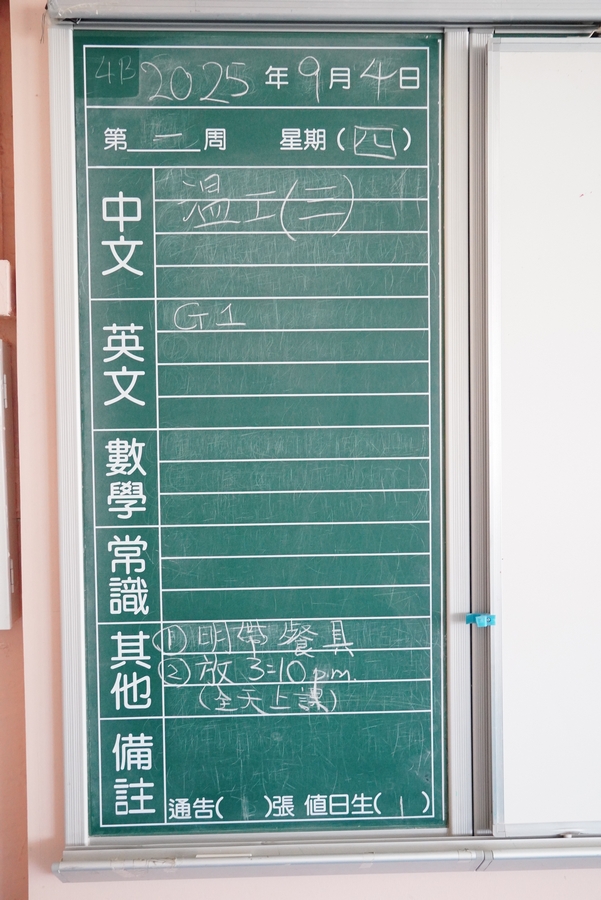 4B 2025年9月4日
第一周 星期(四)
中文 溫工(二)
英文 G1
數學
常識
其他 ①明帶餐具
②放3:10p.m.
(全天上課)
備註
通告( )張 值日生(1)